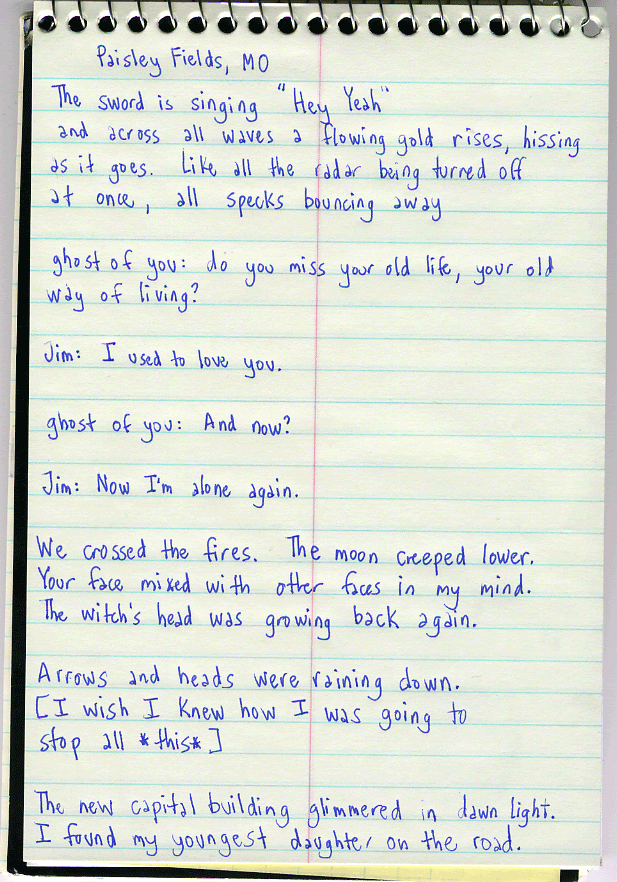 Paisley Fields, MO
The sword is singing "Hey Yeah"
and across all waves a flowing gold rises, hissing
as it goes. Like all the radar being turned off
at once, all specks bouncing away
ghost of you: do you miss your old life, your old
way of living?
Jim: I used to love you.
ghost of you: And now?
Jim: Now I'm alone again.
We crossed the fires. The moon creeped lower.
Your face mixed with other faces in my mind.
The witch's head was growing back again.
Arrows and heads were raining down.
[I wish I knew how I was going to
stop all *this*]
The new capital building glimmered in dawn light.
I found my youngest daughter on the road.